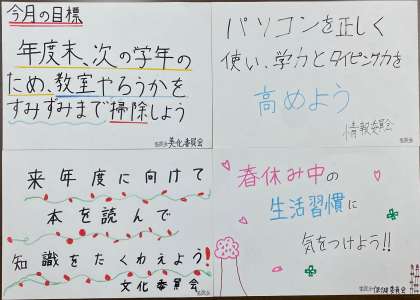 今月の目標
年度末、次の学年の
ため、教室やろうかを
すみずみまで掃除しよう
美化委員会
パソコンを正しく
使い、学力とタイピング力を
高めよう
情報委員会
来年度に向けて
本を読んで
知識をたくわえよう!
文化委員会
春休み中の
生活習慣に
気をつけよう!!
保健委員会